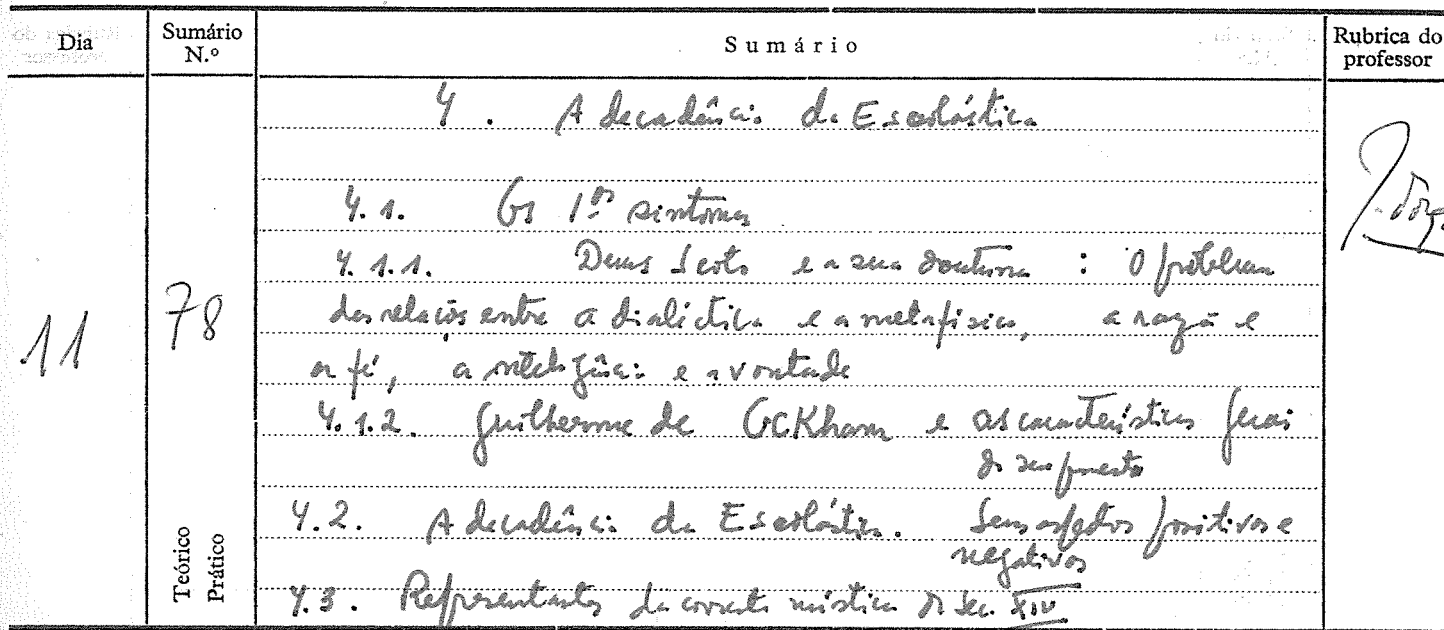 Dia
Sumário N.º
Sumário
Rubrica do professor
4. A decadência da Escolástica
4.1. Os 1.os sintomas
4.1.1. Duns Scoto e a sua doutrina : O problema
das relações entre a dialéctica e a metafísica, a razão e
a fé, a inteligência e a vontade
11
78
4.1.2. Guilherme de OCKham e as características gerais
do seu
4.2. A decadência da Escolástica. Seus aspectos positivos e
negativos
Teórico
Prático
4.3. Representantes da corrente mística do Séc. XIV